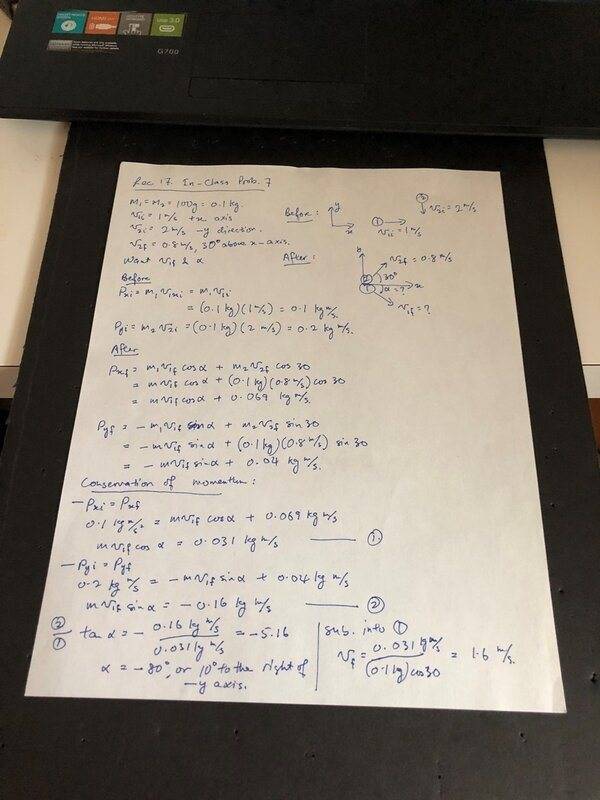 HDMI
USB 3.0
G700
Rec 17. In-Class Prob. 7
m₁ = m₂ = 100g = 0.1 kg.
v₁ᵢ = 1 m/s +x axis
v₂ᵢ = 2 m/s -y direction.
v₂f = 0.8 m/s, 30° above x-axis.
Want v₁f & α
Before:
y
x
①
v₁ᵢ = 1 m/s
②
v₂ᵢ = 2 m/s
After:
v₂f = 0.8 m/s
30°
②
①
α = ?
x
v₁f = ?
Before
Pxi = m₁ v₁xi = m₁ v₁ᵢ
= (0.1 kg)(1 m/s) = 0.1 kg m/s.
Pyi = m₂ v₂ᵢ = (0.1 kg)(2 m/s) = 0.2 kg m/s.
After
Pxf = m₁ v₁f cos α + m₂ v₂f cos 30
= m v₁f cos α + (0.1 kg)(0.8 m/s) cos 30
= m v₁f cos α + 0.069 kg m/s.
Pyf = - m₁ v₁f sin α + m₂ v₂f sin 30
= - m v₁f sin α + (0.1 kg)(0.8 m/s) sin 30
= - m v₁f sin α + 0.04 kg m/s.
Conservation of momentum:
- Pxi = Pxf
0.1 kg m/s = m v₁f cos α + 0.069 kg m/s
m v₁f cos α = 0.031 kg m/s ——— ①.
- Pyi = Pyf
0.2 kg m/s = - m v₁f sin α + 0.04 kg m/s
m v₁f sin α = - 0.16 kg m/s ——— ②
②/① tan α = - 0.16 kg m/s / 0.031 kg m/s = -5.16
α = -80°, or 10° to the right of
-y axis.
sub. into ①
vf = 0.031 kg m/s / (0.1 kg) cos 30 = 1.6 m/s.